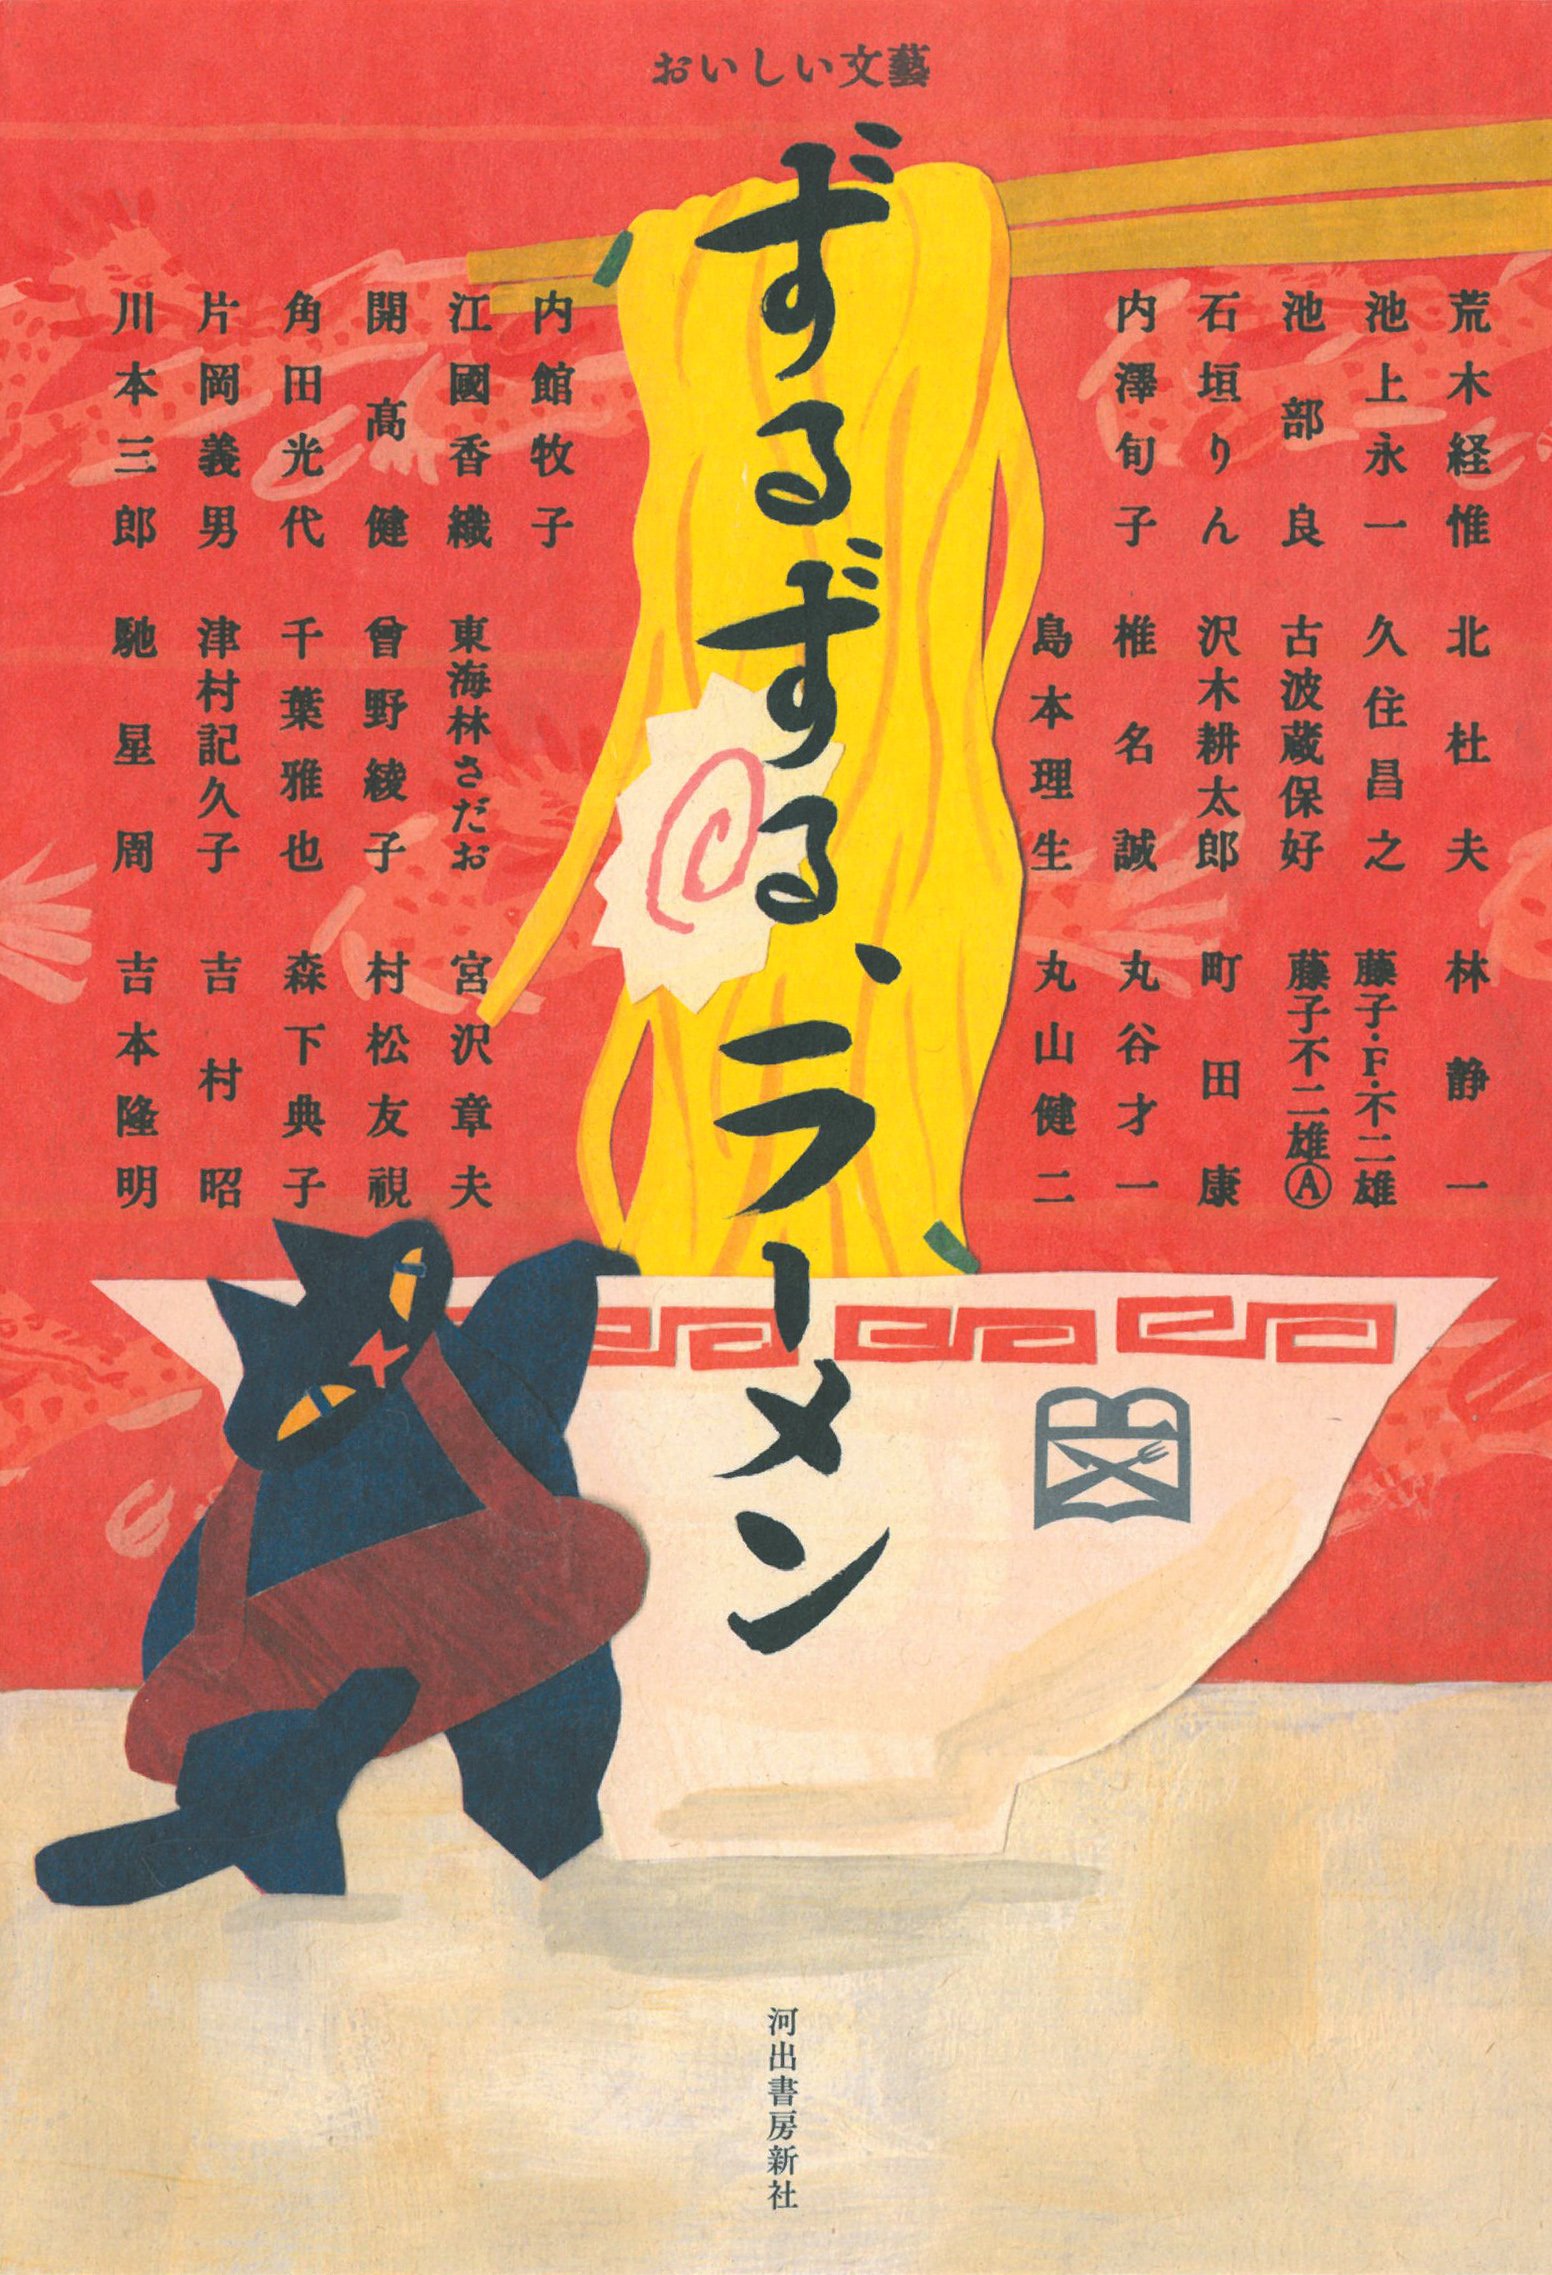 おいしい文藝
ずるずる、ラーメン
荒木経惟
池上永一
池部良
石垣りん
内澤旬子
内館牧子
江國香織
開高健
角田光代
片岡義男
川本三郎
北杜夫
久住昌之
古波蔵保好
沢木耕太郎
椎名誠
島本理生
東海林さだお
曾野綾子
千葉雅也
津村記久子
馳星周
林静一
藤子・F・不二雄
藤子不二雄Ⓐ
町田康
丸谷才一
丸山健二
宮沢章夫
村松友視
森下典子
吉村昭
吉本隆明
河出書房新社